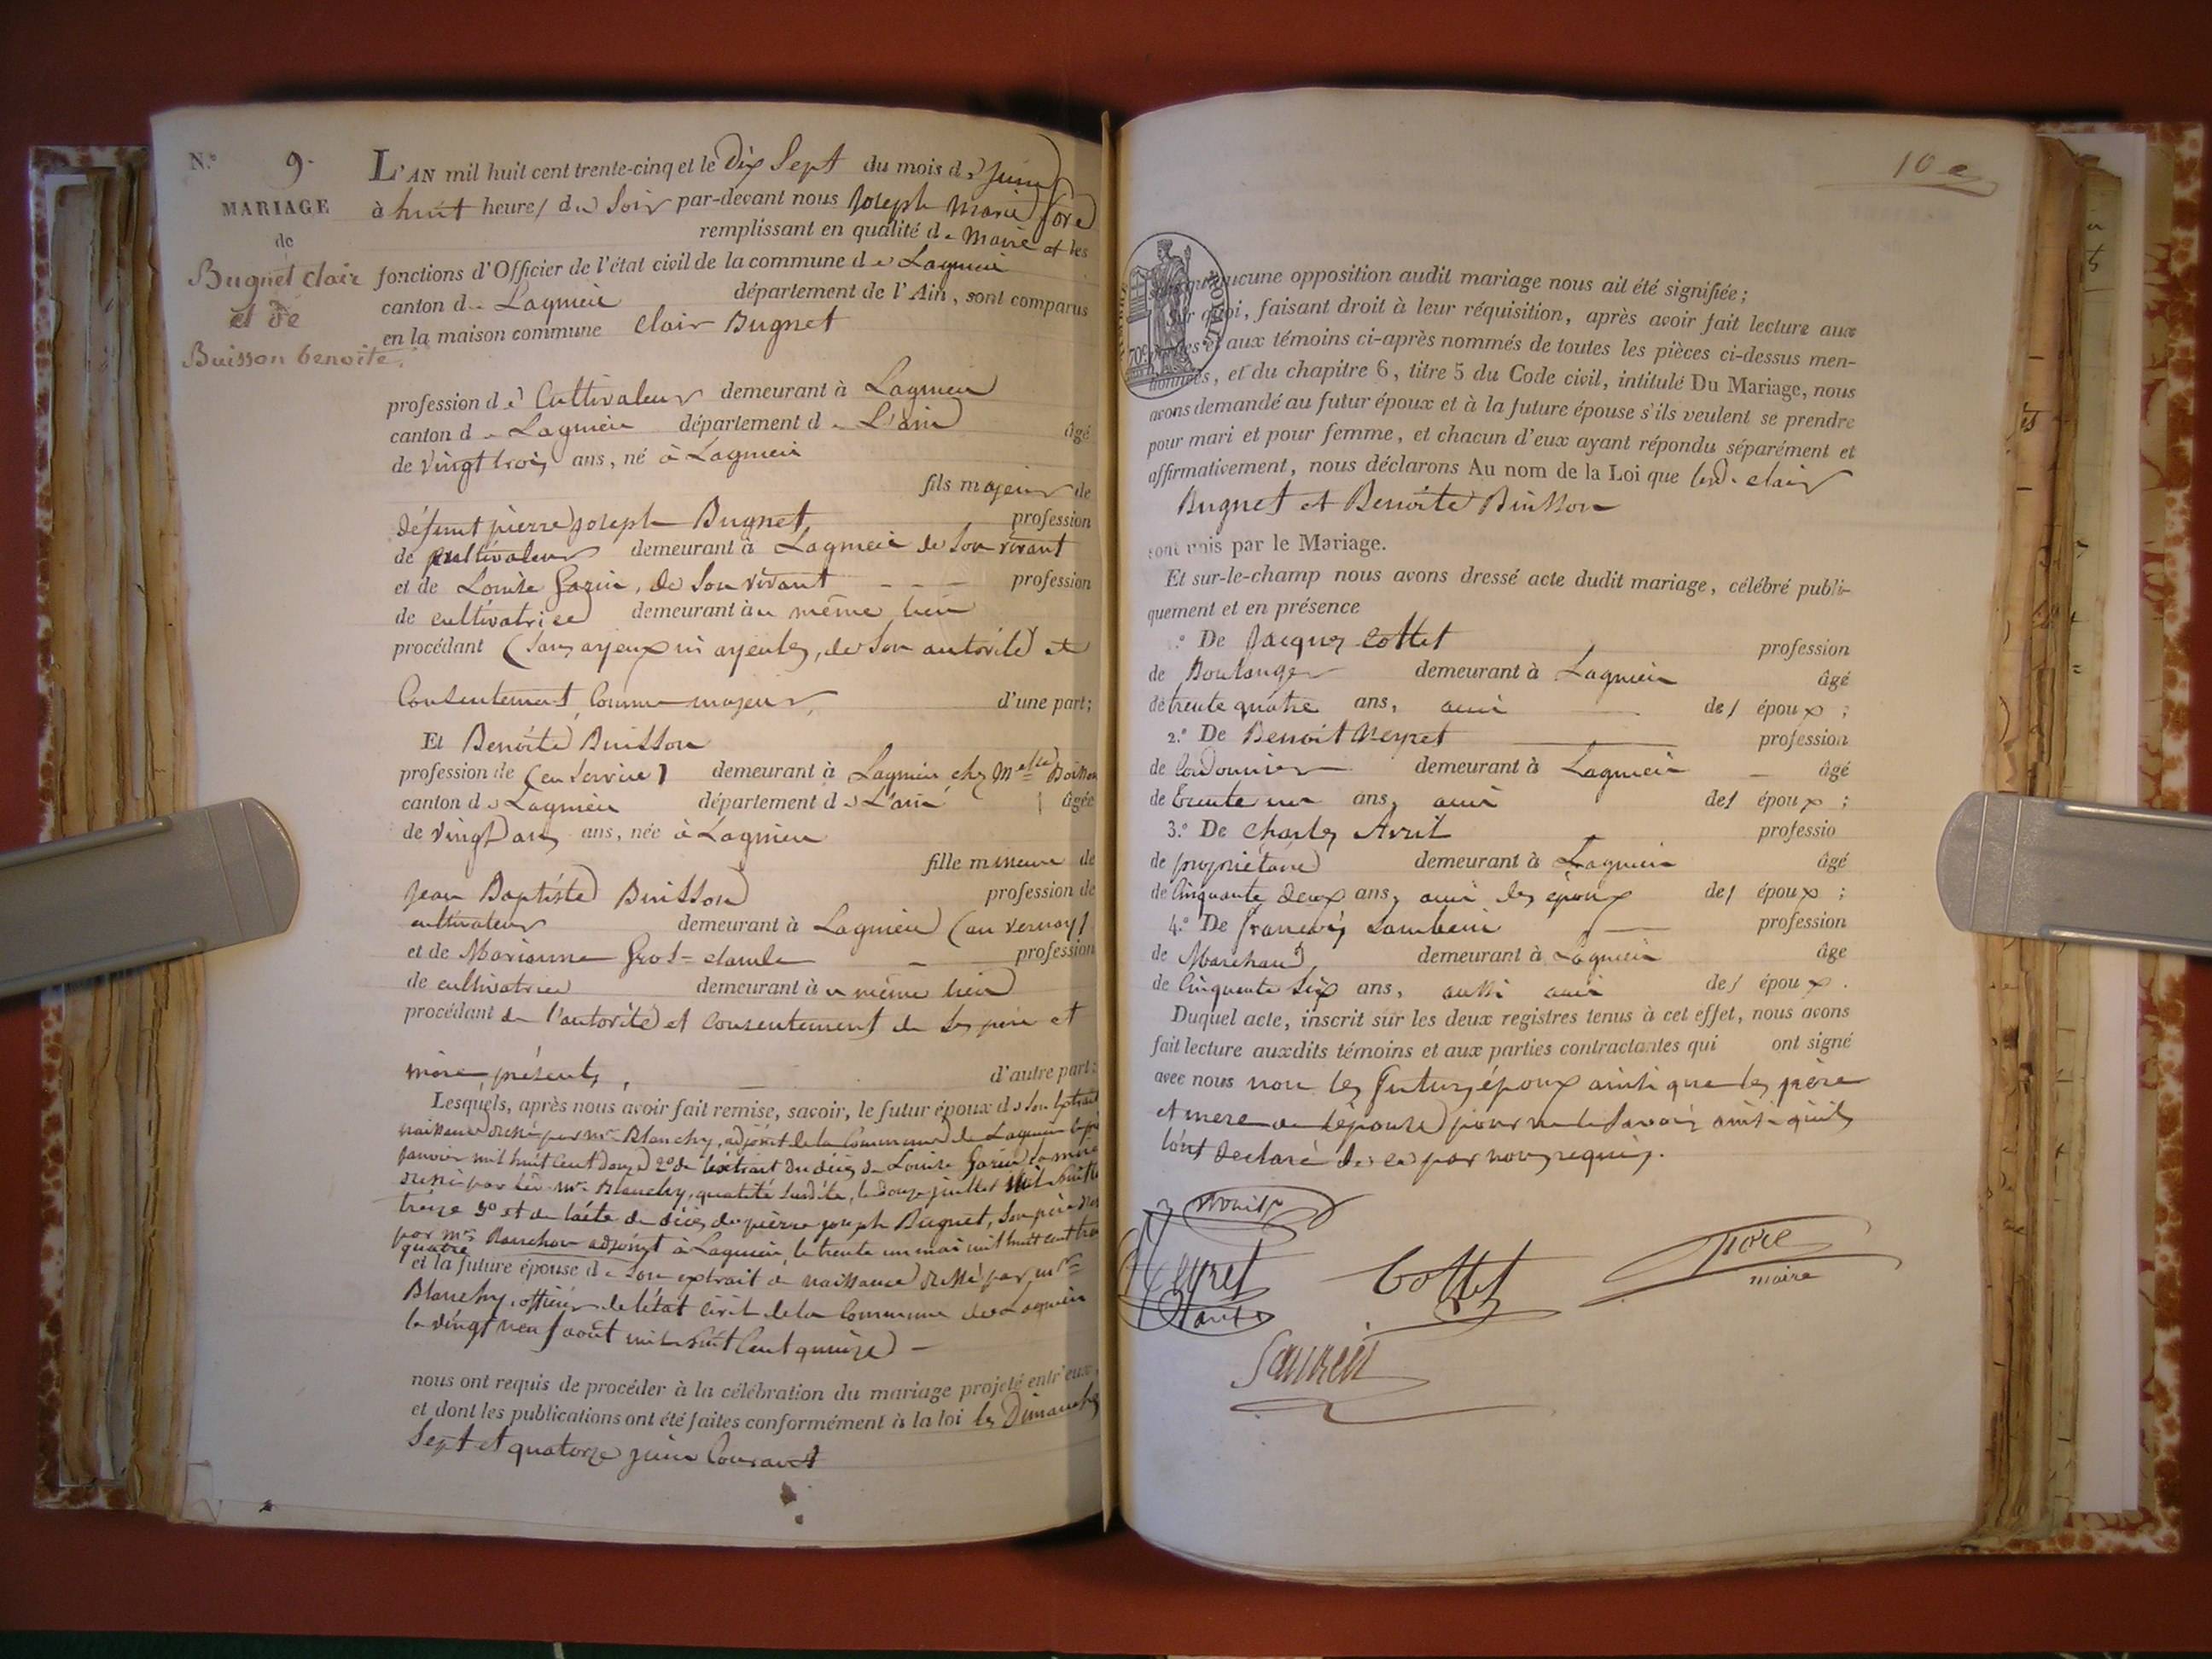 N.º 9.
MARIAGE
de
Bugnet Clair
et de
Buisson benoite.
L'AN mil huit cent trente-cinq et le Dix Sept du mois de Juin
à huit heures du Soir par-devant nous Joseph Marie fore
remplissant en qualité de Maire et les
fonctions d'Officier de l'état civil de la commune de Lagnieu
canton de Lagnieu département de l'Ain, sont comparus
en la maison commune Clair Bugnet
profession de Cultivateur demeurant à Lagnieu
canton de Lagnieu département de L'ain âgé
de vingt trois ans, né à Lagnieu
fils majeur de
défunt pierre joseph Bugnet, profession
de cultivateur demeurant à Lagnieu de son vivant
et de Louise Garin, de Son vivant profession
de cultivatrice demeurant au même lieu
procédant (sans ayeux ni ayeules, de Son autorité et
Consentement, Comme majeur, d'une part;
Et Benoite Buisson
profession de (en Service) demeurant à Lagnieu chez Melle
canton de Lagnieu département de L'ain âgée
de vingt ans ans, née à Lagnieu
fille mineure de
Jean Baptiste Buisson profession de
cultivateur demeurant à Lagnieu (au vernay)
et de Marianne Gros-claude profession
de cultivatrice demeurant au même lieu
procédant de l'autorité et Consentement de ses père et
mère, présents, d'autre part:
Lesquels, après nous avoir fait remise, savoir, le futur époux de son Extrait
naissance dressé par mr Blanchy, adjoint de la Commune de Lagnieu
janvier mil huit Cent douze 2º de l'extrait du décès de Louise Garin sa mère
dressé par led. mr Blanchy, qualité susdite, le douze juillet mil huit
treize 3º et de l'acte de décès de pierre joseph Bugnet, son père
par mr adjoint à Lagnieu, le trente un mai mil huit cent
quatre
et la future épouse de Son extrait de naissance dressé par mr
Blanchy, officier de l'état Civil de la Commune de Lagnieu
le vingt neuf août mil huit Cent quinze) –
nous ont requis de procéder à la célébration du mariage projeté entr'eux,
et dont les publications ont été faites conformément à la loi les Dimanches
Sept et quatorze juin Courant
10 e
TIMBRE ROYAL
70c
sans qu'aucune opposition audit mariage nous ait été signifiée;
Sur quoi, faisant droit à leur réquisition, après avoir fait lecture aux
parties et aux témoins ci-après nommés de toutes les pièces ci-dessus men-
tionnées, et du chapitre 6, titre 5 du Code civil, intitulé Du Mariage, nous
avons demandé au futur époux et à la future épouse s'ils veulent se prendre
pour mari et pour femme, et chacun d'eux ayant répondu séparément et
affirmativement, nous déclarons Au nom de la Loi que led. clair
Bugnet et Benoite Buisson
sont unis par le Mariage.
Et sur-le-champ nous avons dressé acte dudit mariage, célébré publi-
quement et en présence
.º De Jacques Cottet profession
de Boulanger demeurant à Lagnieu âgé
de trente quatre ans, ami des époux;
2.º De Benoit Neyret profession
de Cordonnier demeurant à Lagnieu âgé
de trente un ans, ami des époux;
3.º De Charles Avril professio
de propriétaire demeurant à Lagnieu âgé
de Cinquante deux ans, ami des époux des époux;
4.º De françois profession
de Marchand, demeurant à Lagnieu âge
de Cinquante Six ans, aussi ami des époux.
Duquel acte, inscrit sur les deux registres tenus à cet effet, nous avons
fait lecture auxdits témoins et aux parties contractantes qui ont signé
avec nous non les futurs époux ainsi que les père
et mère de l'épouse pour ne le Savoir, ainsi qu'ils
l'ont déclaré de ce par nous requis.
Neyret
Cottet
fore
maire